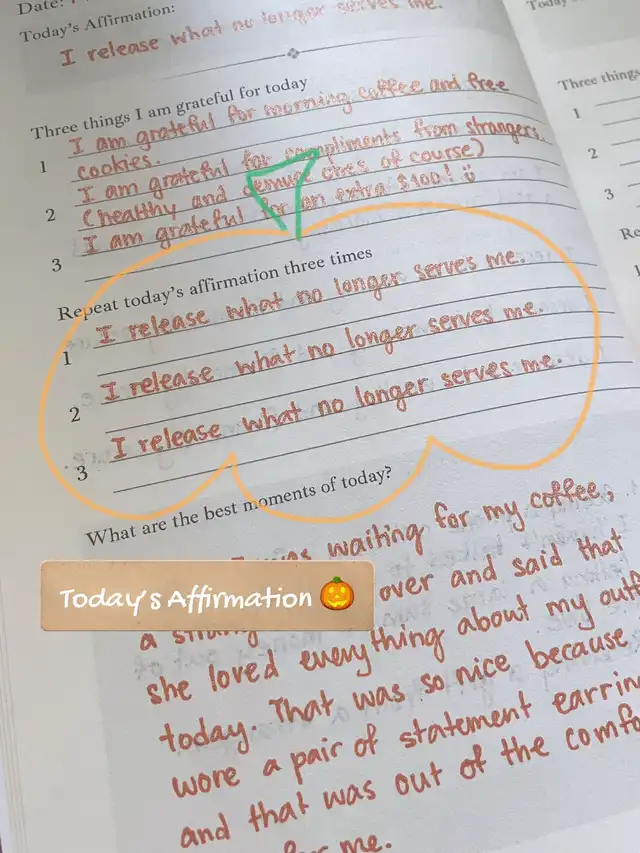 Date:
Today's Affirmation:
I release what no longer serves me.
Three things I am grateful for today
1 I am grateful for morning coffee and free
cookies.
2 I am grateful for compliments from strangers.
(healthy and ones of course)
3 I am grateful for an extra $100!
Repeat today's affirmation three times
1 I release what no longer serves me.
2 I release what no longer serves me.
3 I release what no longer serves me.
What are the best moments of today?
was waiting for my coffee,
a over and said that
she loved everything about my
today. That was so nice because
wore a pair of statement
and that was out of the
me.
Today's Affirmation 🎃
Today
Three things
1
2
3